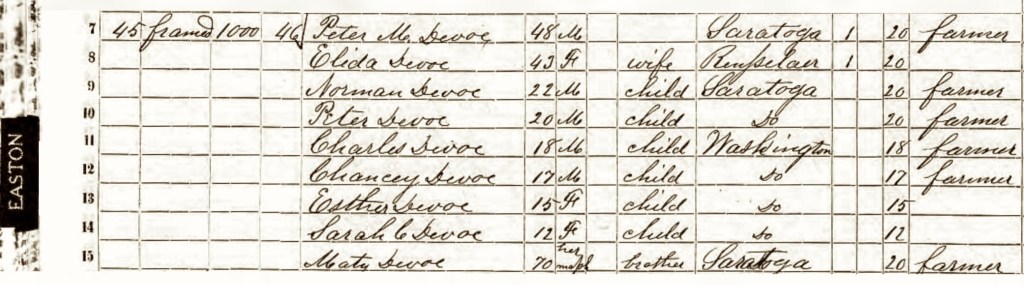 EASTON
7 45 framed 1000 46 Peter M. Devoe 48 M Saratoga 1 20 farmer
8 Elida Devoe 43 F wife Renfselaer 1 20
9 Norman Devoe 22 M child Saratoga 20 farmer
10 Peter Devoe 20 M child Do 20 farmer
11 Charles Devoe 18 M child Washington 18 farmer
12 Chancey Devoe 17 M child Do 17 farmer
13 Esther Devoe 15 F child Do 15
14 Sarah C Devoe 12 F child Do 12
15 Maty Devoe 70 brother Saratoga 20 farmer